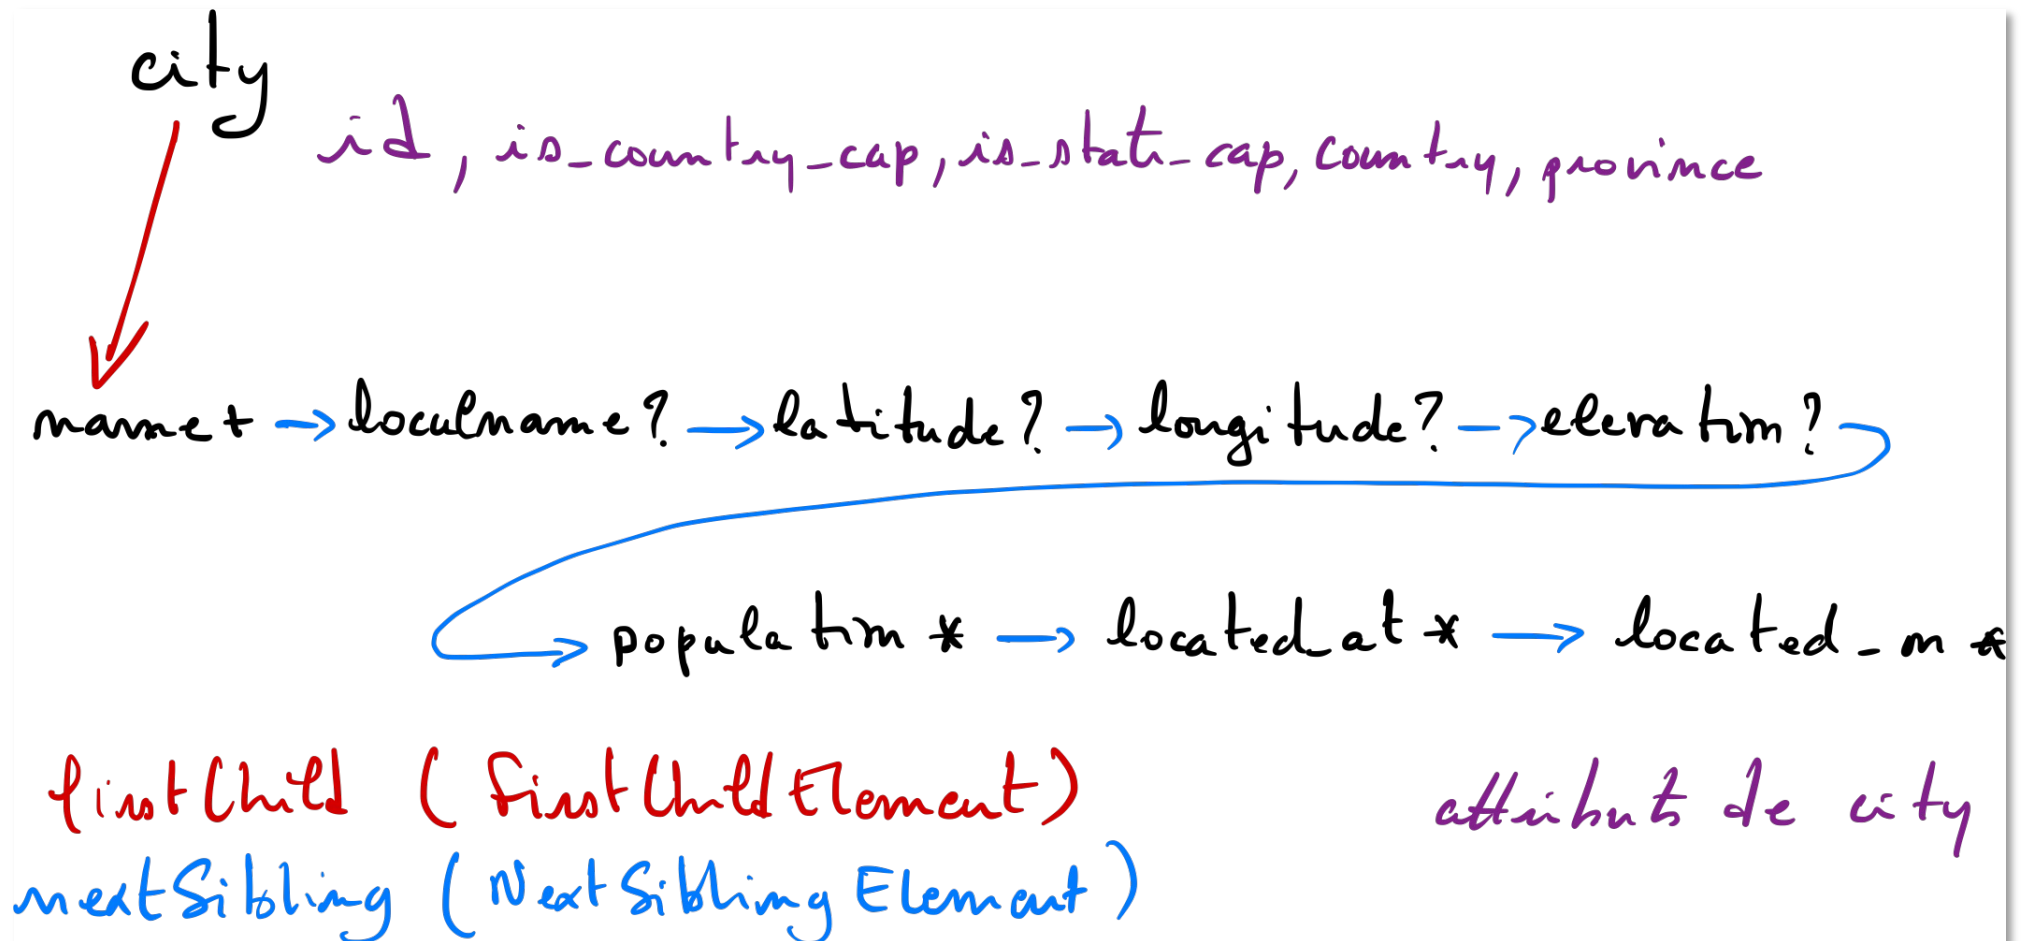 city
id, is_country_cap, is_state_cap, country, province
name+ → localname? → latitude? → longitude? → elevation?
population * → located_at * → located_on *
firstChild (FirstChildElement)
attributs de city
nextSibling (NextSiblingElement)